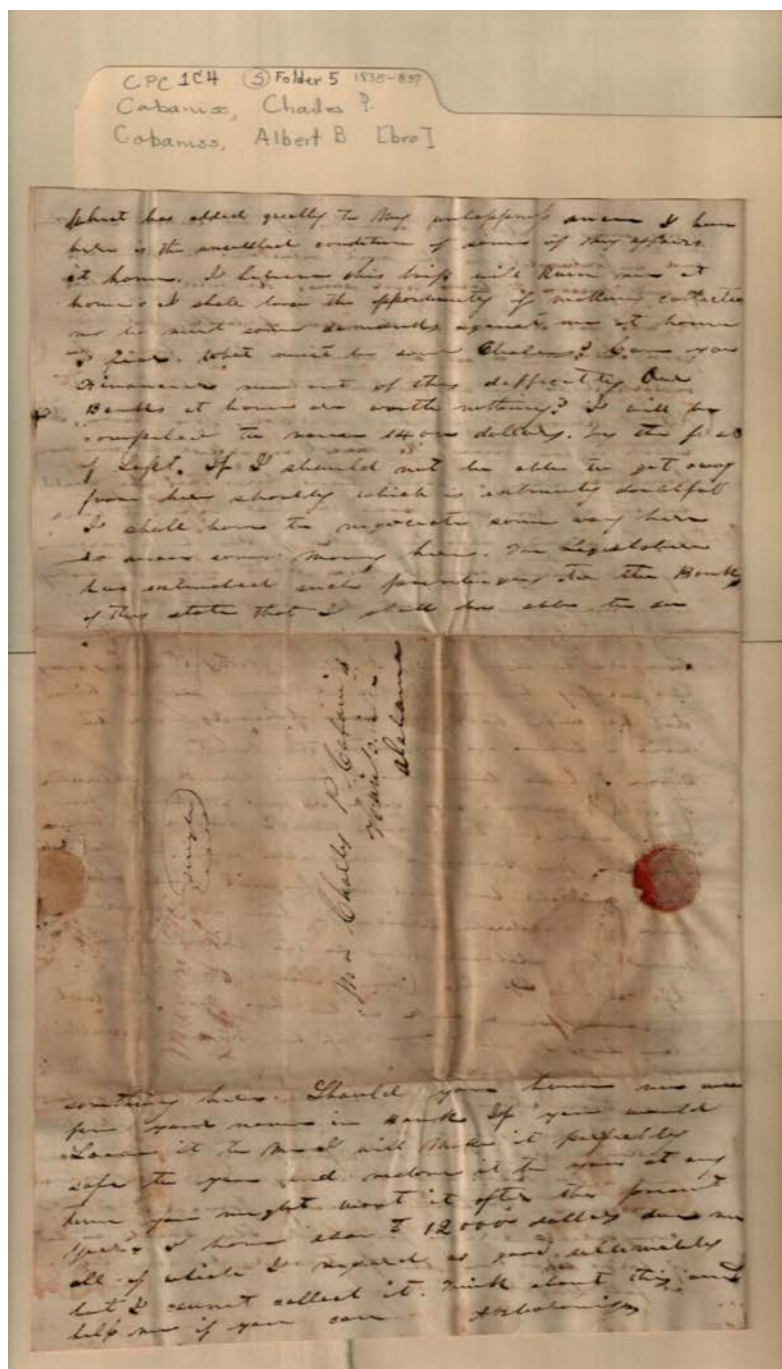 CPC 1C4 (5) Folder 5 1835-1837
Cabaniss, Charles ?
Cabaniss, Albert B [bro]
What has added greatly to my unhappyness since I have
been is the unsettled condition of some of my affairs
at home. I believe this trip will Ruin me at
home. I shall loose the opportunity of
me to meet some demands against me at home
I fear. What must be done Charles? Can you
Financier me out of this difficulty Our
Banks at home are worth nothing? I will be
compelled to raise 1400 dollars. by the first
of Sept. If I should not be able to get away
from here shortly which is extremely doubtful
I shall have to negociate some way here
to raise some money here. The Legislature
has extended such to the Banks
of this state that I shall be able to do
Mr Charles P. Cabaniss
Alabama
Single
something here. Should you have as
good money in Bank If you would
Loan it to me I will make it perfectly
safe to you and restore it to you at any
time you might want it after the present
year. I have about 12000 dollars due me
all of which I regard as good ultimately
but I cannot collect it. Think about this and
help me if you can A B Cabaniss